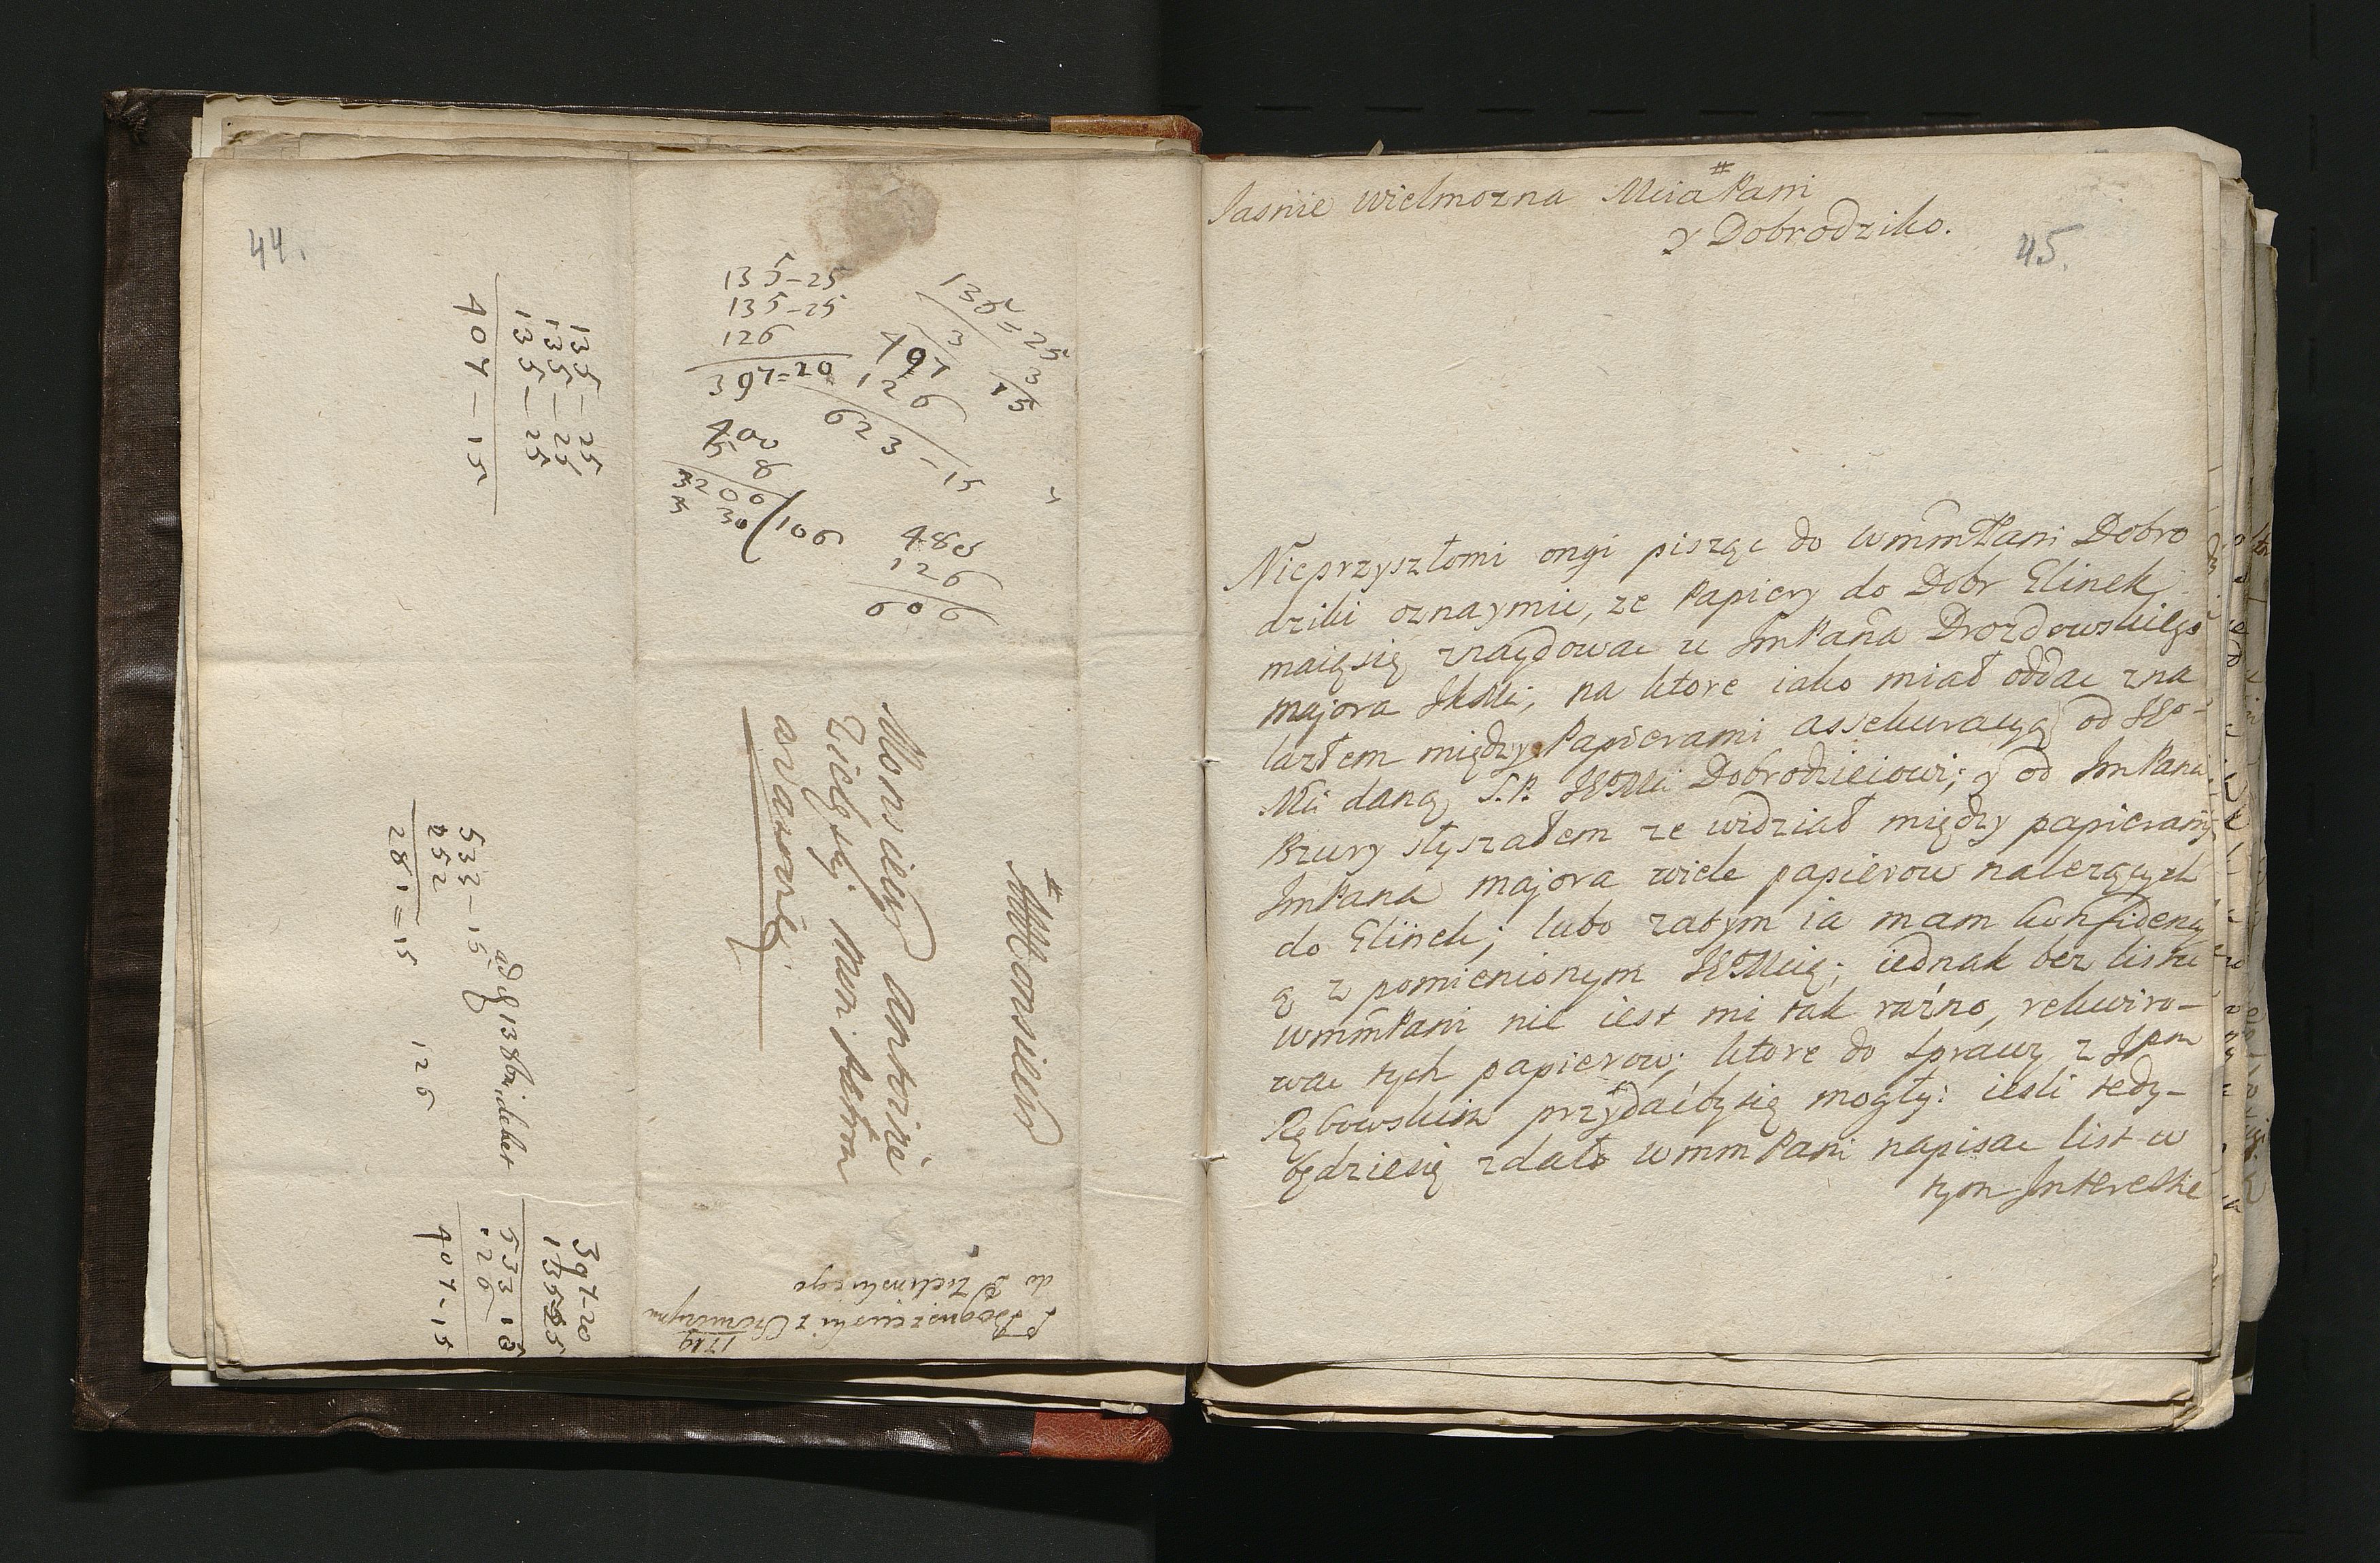 44.
135-25
135-25
126
397=20
135=25
3 3
407 15
126
623-15
400
5 8
3200
3 30 (106
480
126
606
135-25
135-25
135-25
407-15
Monsieur
Monsieur Antoine
Zielyský. Mon patron
a Varsovie
533-15
252
281=15
ad 13 8bri, debet
126
397-20
135 25
533 15
126
407-15
1719
P Boguszewski z
do P Zielinskiego
Jasnie wielmozna Mcia Pani
y Dobrodziko.
45.
Nieprzyszłomi ongi pisząc do wmmPani Dobro
dziki oznaymic, ze Papiery do Dobr Elinek
maiąsię znaydowac u ImPana Drozdowskiego
majora JKMci, na ktore iako miał oddac zna
lazłem między Papierami assekuracyą od Je°-
Mci daną S.P. JeMci Dobrodzieiowi; y od ImPana
Brury słyszałem ze widział między papierami
ImPana majora wiele papierow nalezących
do Elinek; lubo zatym ia mam konfidency
ą z pomienionym JeMcią; iednak bez listu
wmmPani nie iest mi tak raźno, rekwiro-
wac tych papierow; ktore do sprawy z Jpm
Rębowskim przydaćbysię mogły: iesli tedy-
będziesię zdało wmmPani napisac list w
tym Interessie